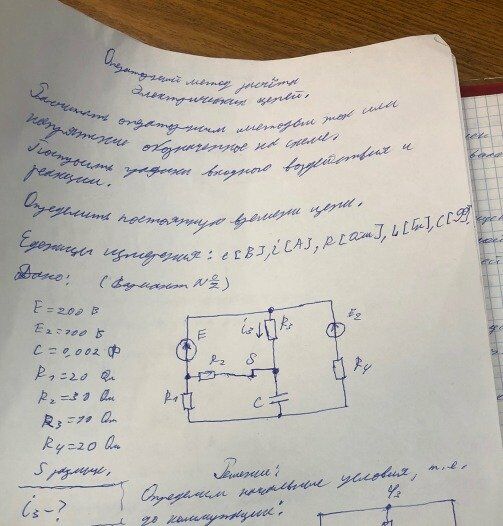 Операторный метод расчёта
электрических цепей.
Рассчитать операторным методом ток или
напряжение обозначенное на схеме.
Построить графики входного воздействия и
реакции.
Определить постоянную времени цепи.
Единицы измерения: e[В], i[А], R[Ом], L[Гн], C[Ф]
Дано: (Вариант №2)
E = 200 В
E2 = 100 В
C = 0,002 Ф
R1 = 20 Ом
R2 = 30 Ом
R3 = 10 Ом
R4 = 20 Ом
S размык.
i3 - ?
E
R1
R2
S
i3
R3
C
E2
R4
Решение:
Определим начальные условия, т.е.
до коммутации:
φ3